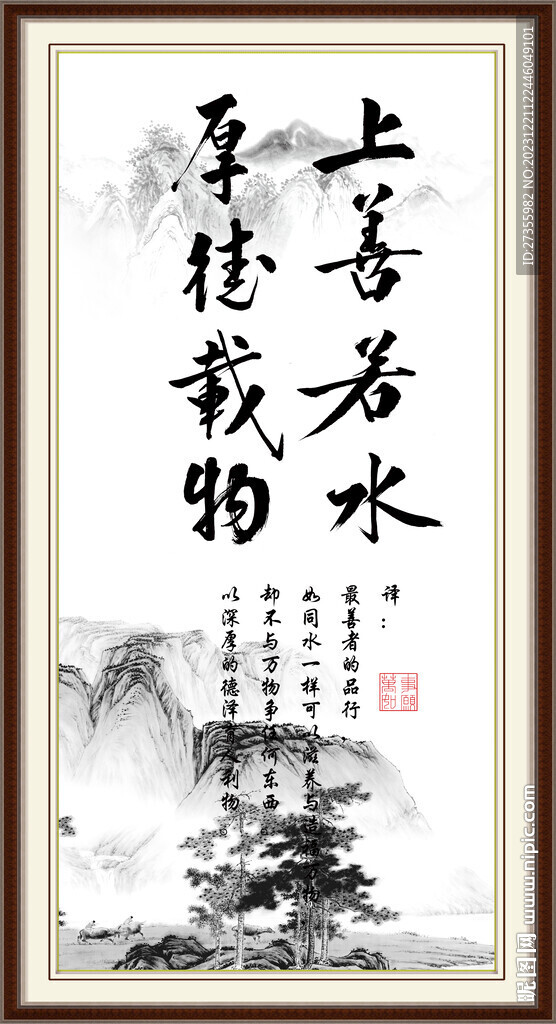 上善若水
厚德载物
译：
最善者的品行
如同水一样可以滋养与造福万物
却不与万物争任何东西
以深厚的德泽育人利物。
事願
萬如
ID:27355982 NO:20231221122446049101
昵图网 www.nipic.com